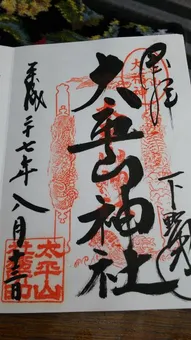 奉拝
下野
太平山神社
平成二十七年 八月
太平山